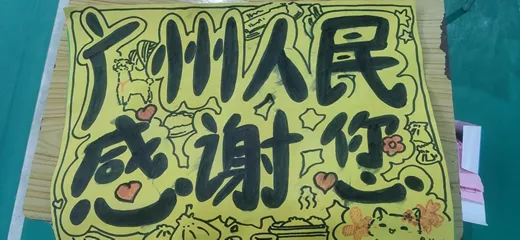 广州人民
感谢您